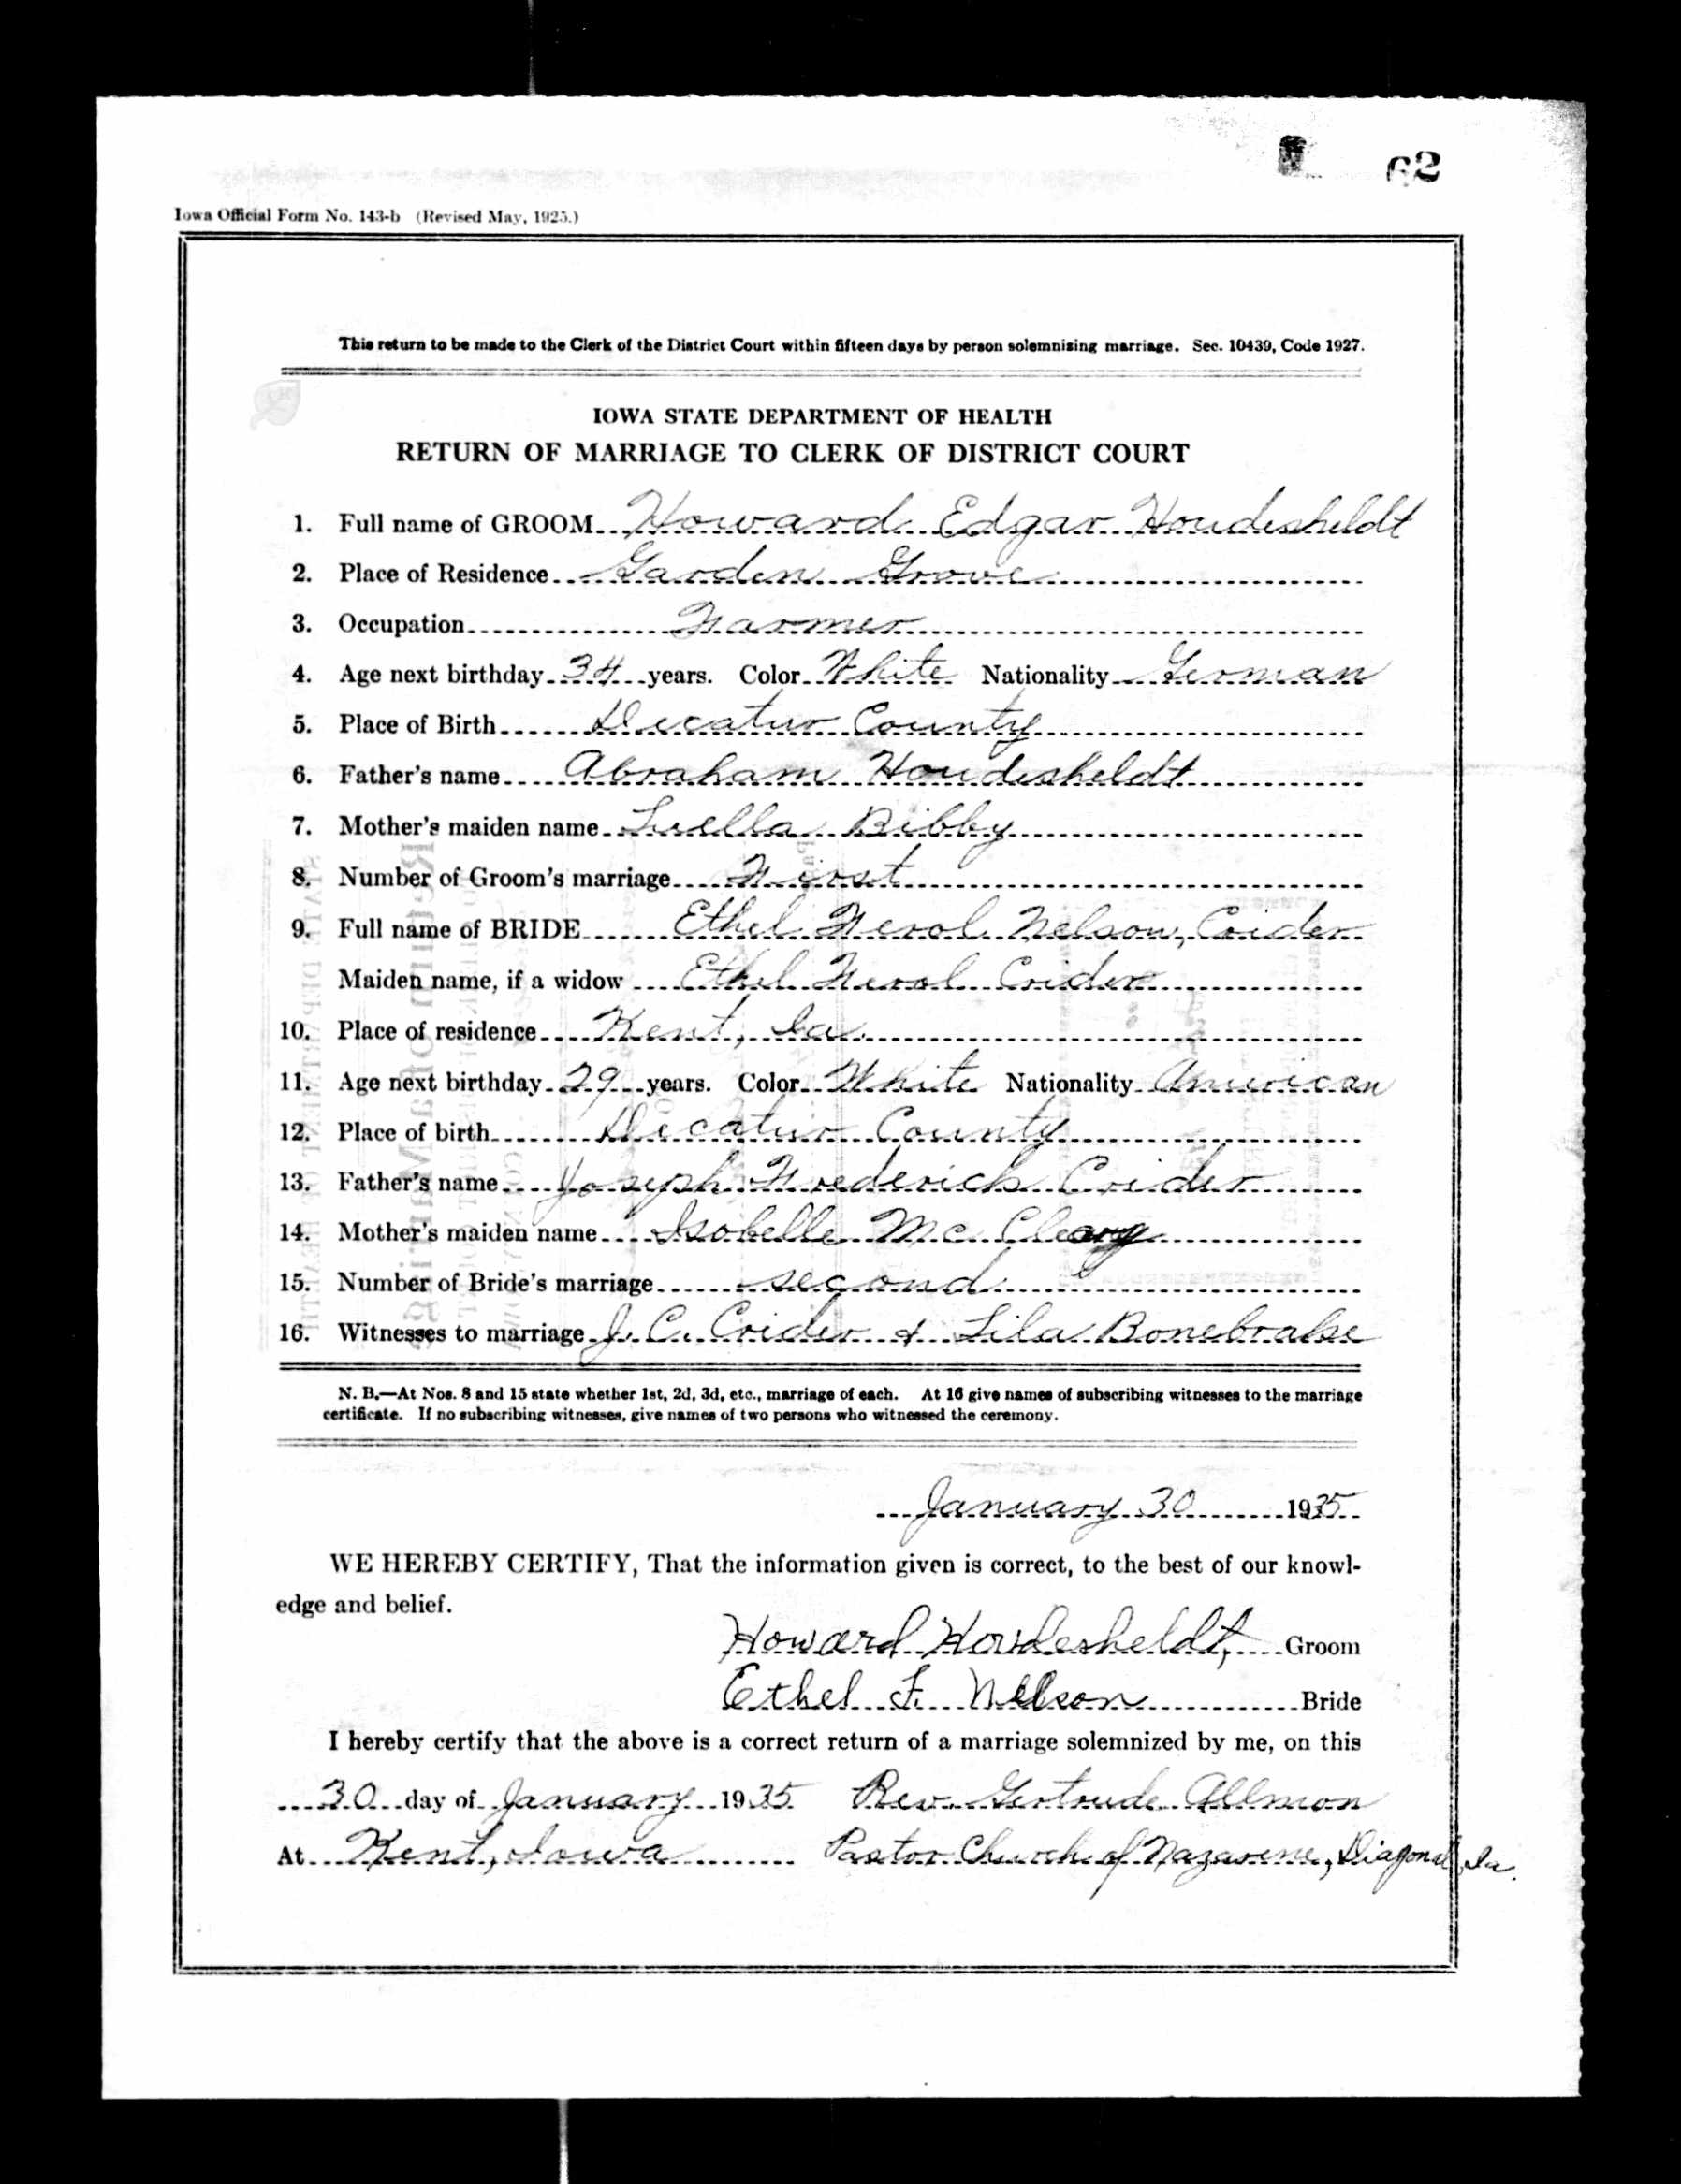 62
Iowa Official Form No. 143-b (Revised May, 1925.)
This return to be made to the Clerk of the District Court within fifteen days by person solemnizing marriage. Sec. 10439, Code 1927.
IOWA STATE DEPARTMENT OF HEALTH
RETURN OF MARRIAGE TO CLERK OF DISTRICT COURT
1. Full name of GROOM Howard Edgar Houdesheldt
2. Place of Residence Garden Grove
3. Occupation Farmer
4. Age next birthday 34 years. Color White Nationality German
5. Place of Birth Decatur County
6. Father's name Abraham Houdesheldt
7. Mother's maiden name Luella Bibby
8. Number of Groom's marriage First
9. Full name of BRIDE Ethel Ferol Nelson, Crider
Maiden name, if a widow Ethel Ferol Crider
10. Place of residence Kent, Ia.
11. Age next birthday 29 years. Color White Nationality American
12. Place of birth Decatur County
13. Father's name Joseph Frederick Crider
14. Mother's maiden name Isobelle Mc Cleary
15. Number of Bride's marriage second
16. Witnesses to marriage J. C. Crider & Lila Bonebrake
N. B.—At Nos. 8 and 15 state whether 1st, 2d, 3d, etc., marriage of each. At 16 give names of subscribing witnesses to the marriage
certificate. If no subscribing witnesses, give names of two persons who witnessed the ceremony.
January 30 1935
WE HEREBY CERTIFY, That the information given is correct, to the best of our knowl-
edge and belief.
Howard Houdesheldt, Groom
Ethel F. Nelson Bride
I hereby certify that the above is a correct return of a marriage solemnized by me, on this
30 day of January 1935 Rev. Gertrude Allmon
At Kent, Iowa Pastor Church of Nazarene, Diagonal, Ia.